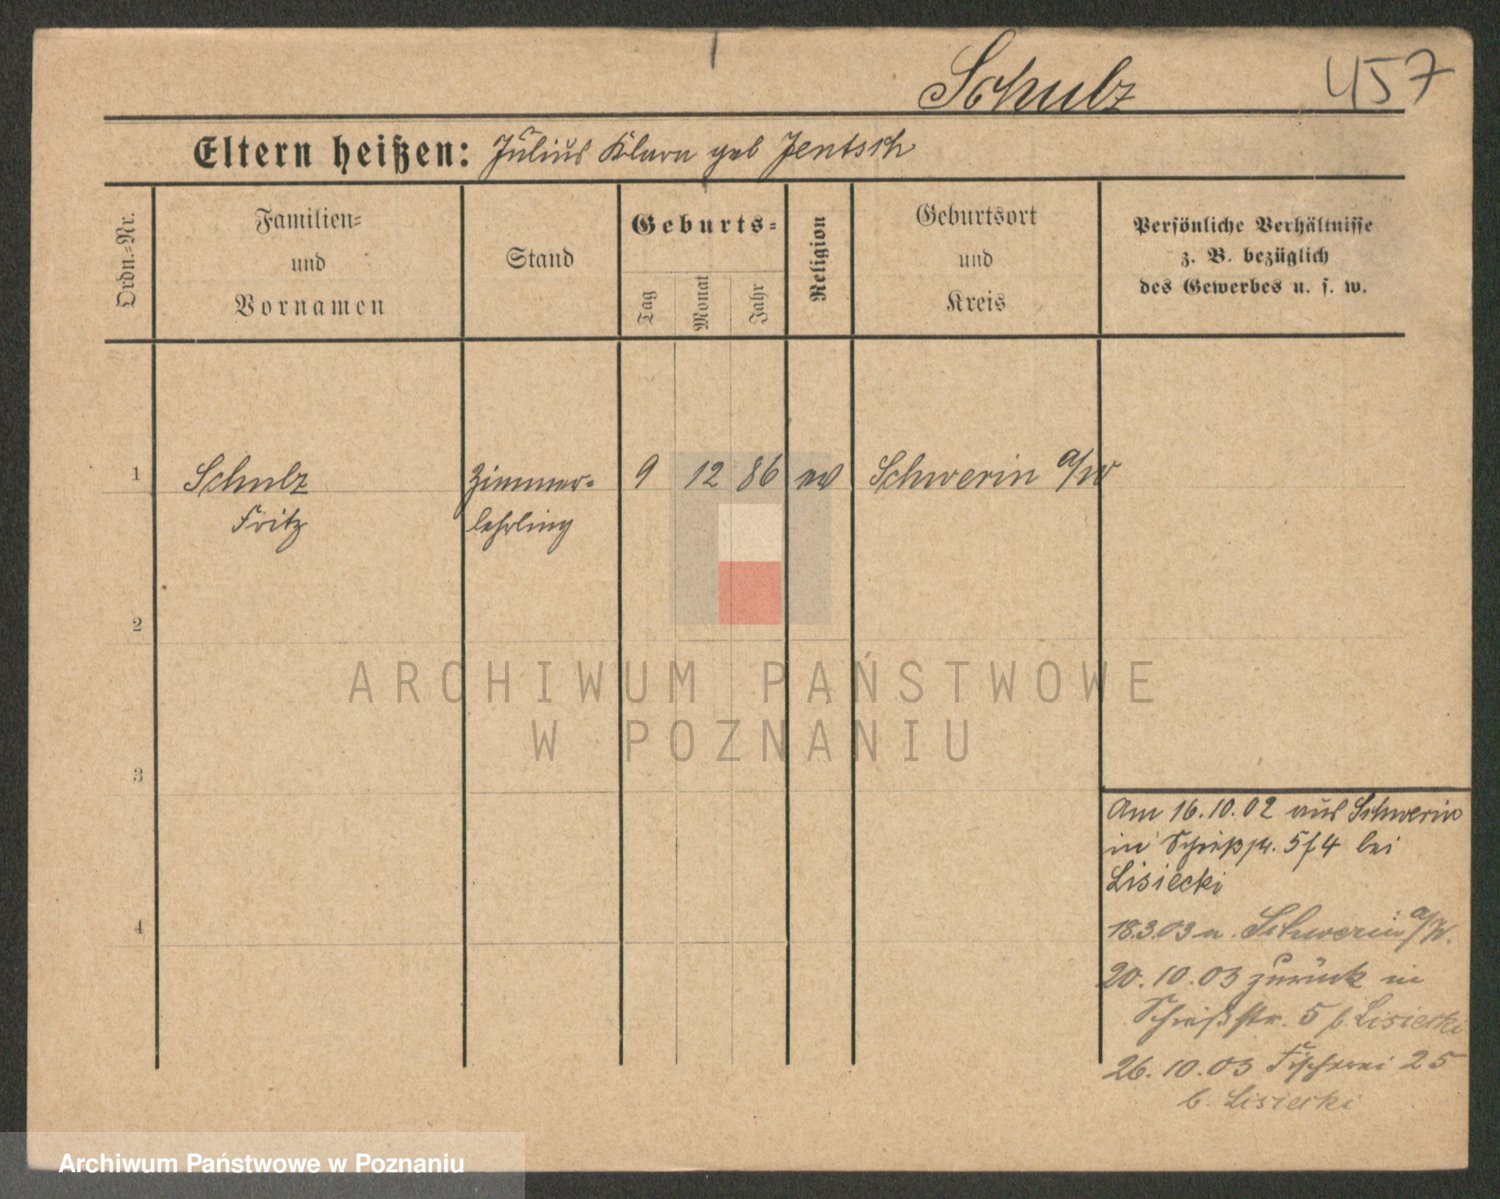 Schulz 457
Eltern heißen: Julius Klara geb Jentsch
Ordn.=Nr.
Familien=
und
Vornamen
Stand
Geburts=
Tag
Monat
Jahr
Religion
Geburtsort
und
Kreis
Persönliche Verhältnisse
z. B. bezüglich
des Gewerbes u. s. w.
1 Schulz Zimmer= 9 12 86 ev Schwerin a/W
Fritz lehrling
2
3
4
Am 16.10.02 aus Schwerin
in Schießstr. 5 f. 4 bei
Lisiecki
18.3.03 n. Schwerin a/W.
20.10.03 zurück in
Schießstr. 5 b. Lisiecki
26.10.03 Fischerei 25
b. Lisiecki
ARCHIWUM PAŃSTWOWE
W POZNANIU
Archiwum Państwowe w Poznaniu